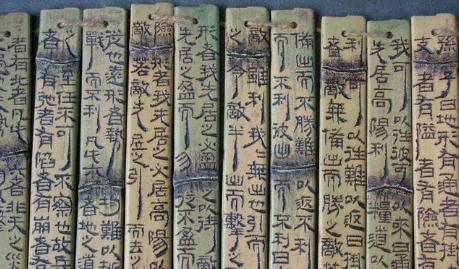 孫子曰地形有通者有掛
支者有隘者有險者
我可以往彼可以來曰
先居高陽利糧道以
利可以往難以返曰掛
者敵無備出而勝之敵
備出而不勝難以返不利
出而不利彼出而不利曰
敵雖利我我無出也引
之令敵半出而擊之
形者我先居之必盈之
先居之盈而勿從不盈
險形者我先居之必居高陽以
敵若敵先居之引而去之
從也遠形者勢均難以挑
戰而不利凡此六者地之道
之至任不可不察也故兵
者有弛者有陷者有崩者
者有北者凡此